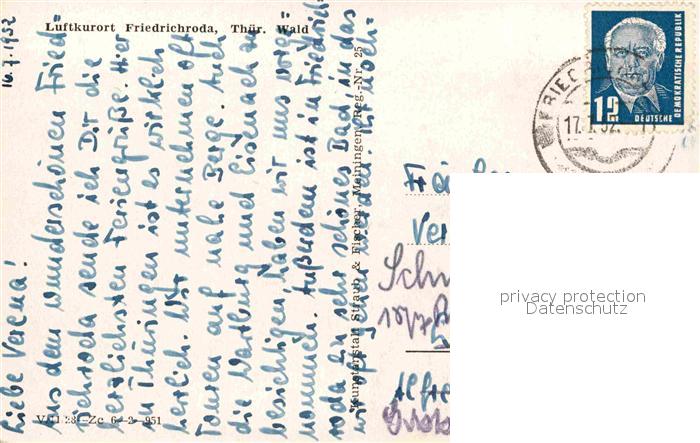 Luftkurort Friedrichroda, Thür. Wald
16.7.1952
Liebe Verena!
Aus dem wunderschönen Fried-
richroda sende ich Dir die
herzlichsten Feriengrüße. Hier
in Thüringen ist es wirklich
herrlich. Wir unternehmen oft
Touren auf nahe Berge. Auch
die Wartburg und Eisenach zu
besichtigen, haben wir uns vorge-
nommen. Außerdem ist in Friedrich-
roda ein sehr schönes Bad in das
wir oft gehen werden.
Kunstanstalt Straub & Fischer, Meiningen Reg.-Nr. 25
V/11 28 - Zc 6-2-951
12
DEUTSCHE
DEMOKRATISCHE REPUBLIK
FRIED
17.7.52
Fräulein
Ver
Sch
Alfre
privacy protection
Datenschutz